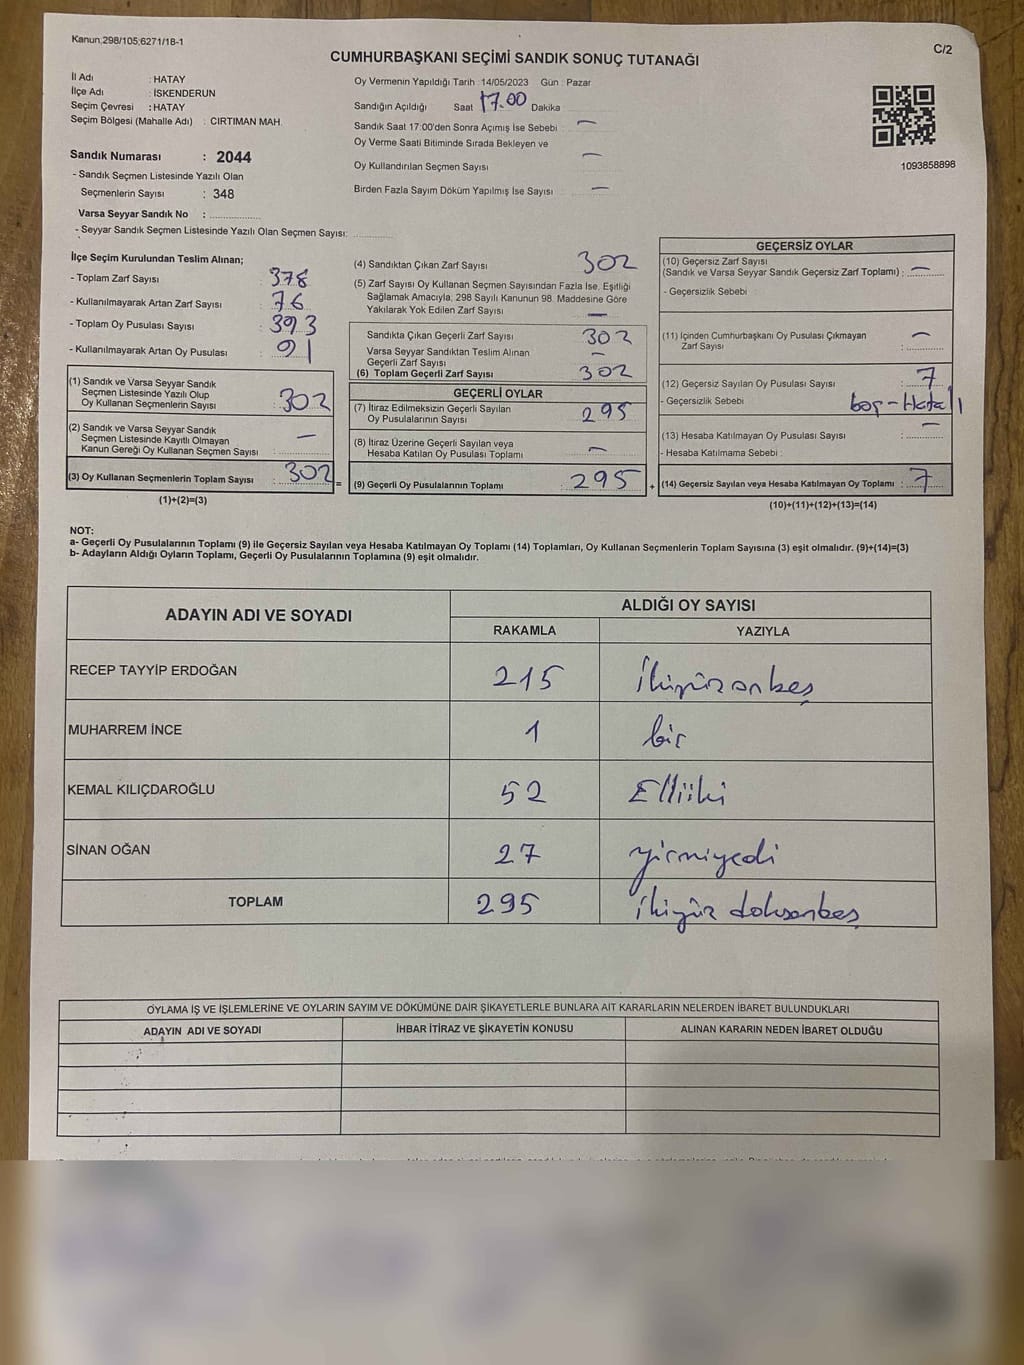 Kanun;298/105;6271/18-1
C/2
CUMHURBAŞKANI SEÇİMİ SANDIK SONUÇ TUTANAĞI
İl Adı : HATAY
İlçe Adı : İSKENDERUN
Seçim Çevresi : HATAY
Seçim Bölgesi (Mahalle Adı) : CIRTIMAN MAH.
Sandık Numarası : 2044
- Sandık Seçmen Listesinde Yazılı Olan
Seçmenlerin Sayısı : 348
Varsa Seyyar Sandık No :
- Seyyar Sandık Seçmen Listesinde Yazılı Olan Seçmen Sayısı:
Oy Vermenin Yapıldığı Tarih : 14/05/2023 Gün : Pazar
Sandığın Açıldığı Saat 17.00 Dakika
Sandık Saat 17:00'den Sonra Açımış İse Sebebi : —
Oy Verme Saati Bitiminde Sırada Bekleyen ve
Oy Kullandırılan Seçmen Sayısı —
Birden Fazla Sayım Döküm Yapılmış İse Sayısı —
1093858898
İlçe Seçim Kurulundan Teslim Alınan;
- Toplam Zarf Sayısı : 378
- Kullanılmayarak Artan Zarf Sayısı : 76
- Toplam Oy Pusulası Sayısı : 393
- Kullanılmayarak Artan Oy Pusulası : 91
(1) Sandık ve Varsa Seyyar Sandık
Seçmen Listesinde Yazılı Olup
Oy Kullanan Seçmenlerin Sayısı : 302
(2) Sandık ve Varsa Seyyar Sandık
Seçmen Listesinde Kayıtlı Olmayan
Kanun Gereği Oy Kullanan Seçmen Sayısı : —
(3) Oy Kullanan Seçmenlerin Toplam Sayısı : 302
(1)+(2)=(3)
=
(4) Sandıktan Çıkan Zarf Sayısı 302
(5) Zarf Sayısı Oy Kullanan Seçmen Sayısından Fazla İse, Eşitliği
Sağlamak Amacıyla; 298 Sayılı Kanunun 98. Maddesine Göre
Yakılarak Yok Edilen Zarf Sayısı —
Sandıkta Çıkan Geçerli Zarf Sayısı 302
Varsa Seyyar Sandıktan Teslim Alınan
Geçerli Zarf Sayısı —
(6) Toplam Geçerli Zarf Sayısı : 302
GEÇERLİ OYLAR
(7) İtiraz Edilmeksizin Geçerli Sayılan
Oy Pusulalarının Sayısı : 295
(8) İtiraz Üzerine Geçerli Sayılan veya
Hesaba Katılan Oy Pusulası Toplamı : —
(9) Geçerli Oy Pusulalarının Toplamı : 295
+
GEÇERSİZ OYLAR
(10) Geçersiz Zarf Sayısı
(Sandık ve Varsa Seyyar Sandık Geçersiz Zarf Toplamı) : —
- Geçersizlik Sebebi :
(11) İçinden Cumhurbaşkanı Oy Pusulası Çıkmayan
Zarf Sayısı : —
(12) Geçersiz Sayılan Oy Pusulası Sayısı : 7
- Geçersizlik Sebebi : boş-Hatalı
(13) Hesaba Katılmayan Oy Pusulası Sayısı : —
- Hesaba Katılmama Sebebi :
(14) Geçersiz Sayılan veya Hesaba Katılmayan Oy Toplamı : 7
(10)+(11)+(12)+(13)=(14)
NOT:
a- Geçerli Oy Pusulalarının Toplamı (9) ile Geçersiz Sayılan veya Hesaba Katılmayan Oy Toplamı (14) Toplamları, Oy Kullanan Seçmenlerin Toplam Sayısına (3) eşit olmalıdır. (9)+(14)=(3)
b- Adayların Aldığı Oyların Toplamı, Geçerli Oy Pusulalarının Toplamına (9) eşit olmalıdır.
ADAYIN ADI VE SOYADI ALDIĞI OY SAYISI
RAKAMLA YAZIYLA
RECEP TAYYİP ERDOĞAN 215 ikiyüzonbeş
MUHARREM İNCE 1 bir
KEMAL KILIÇDAROĞLU 52 Elliiki
SİNAN OĞAN 27 yirmiyedi
TOPLAM 295 ikiyüz doksanbeş
OYLAMA İŞ VE İŞLEMLERİNE VE OYLARIN SAYIM VE DÖKÜMÜNE DAİR ŞİKAYETLERLE BUNLARA AİT KARARLARIN NELERDEN İBARET BULUNDUKLARI
ADAYIN ADI VE SOYADI İHBAR İTİRAZ VE ŞİKAYETİN KONUSU ALINAN KARARIN NEDEN İBARET OLDUĞU